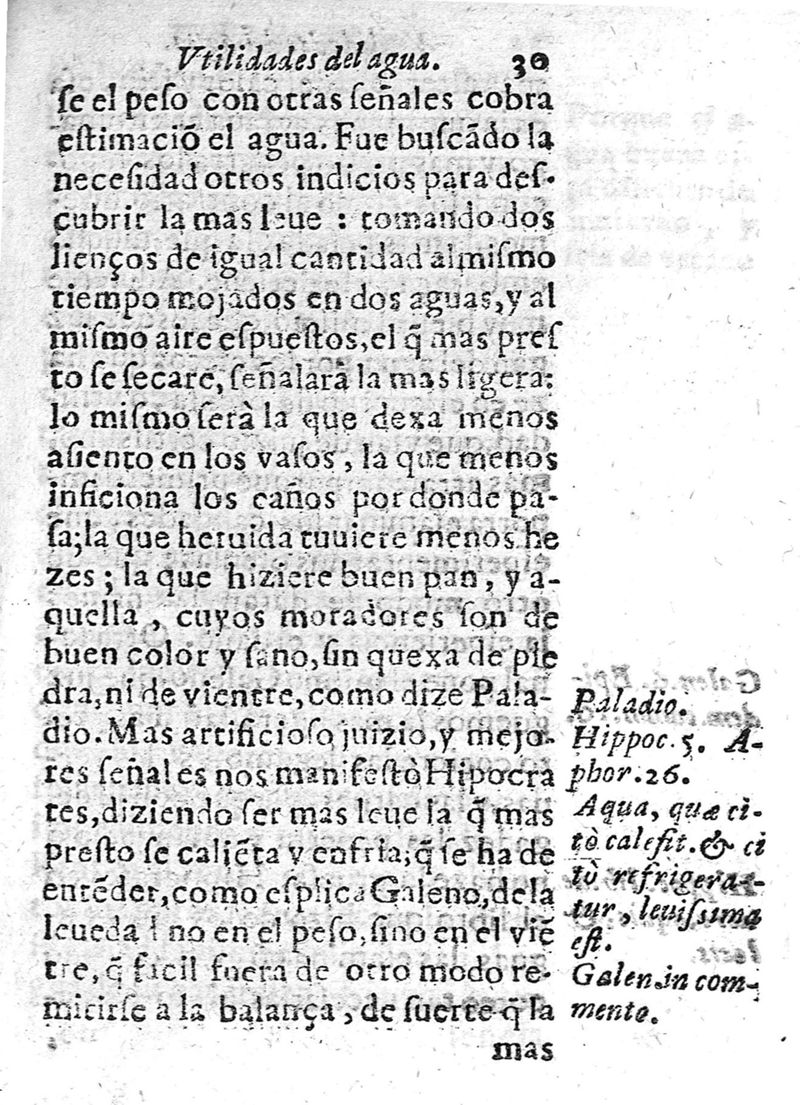 Vtilidades del agua. 30
ſe el peſo con otras ſeñales cobra
eſtimaciõ el agua. Fue buſcãdo la
neceſidad otros indicios para deſ-
cubrir la mas leue : tomando dos
lienços de igual cantidad al miſmo
tiempo mojados en dos aguas, y al
miſmo aire eſpueſtos, el q̃ mas preſ
to ſe ſecare, ſeñalarà la mas ligera:
lo miſmo ſerà la que dexa menos
aſiento en los vaſos, la que menos
inficiona los caños por donde pa-
ſa; la que heruida tuuiere menos he
zes ; la que hiziere buen pan, y a-
quella , cuyos moradores ſon de
buen color y ſano, ſin quexa de pie
dra, ni de vientre, como dize Pala-
dio. Mas artificioſo juizio, y mejo-
res ſeñales nos manifeſtò Hipocra
tes, diziendo ſer mas leue la q̃ mas
preſto ſe caliẽta y enfria; q̃ ſe ha de
entẽder, como eſplica Galeno, de la
leuedad no en el peſo, ſino en el viẽ
tre, q̃ facil fuera de otro modo re-
mitirſe a la balança, de ſuerte q̃ la
mas
Paladio.
Hippoc. 5. A-
phor. 26.
Aqua, quæ ci-
tò calefit. & ci
tò refrigera-
tur, leuiſsima
eſt.
Galen. in com-
mento.